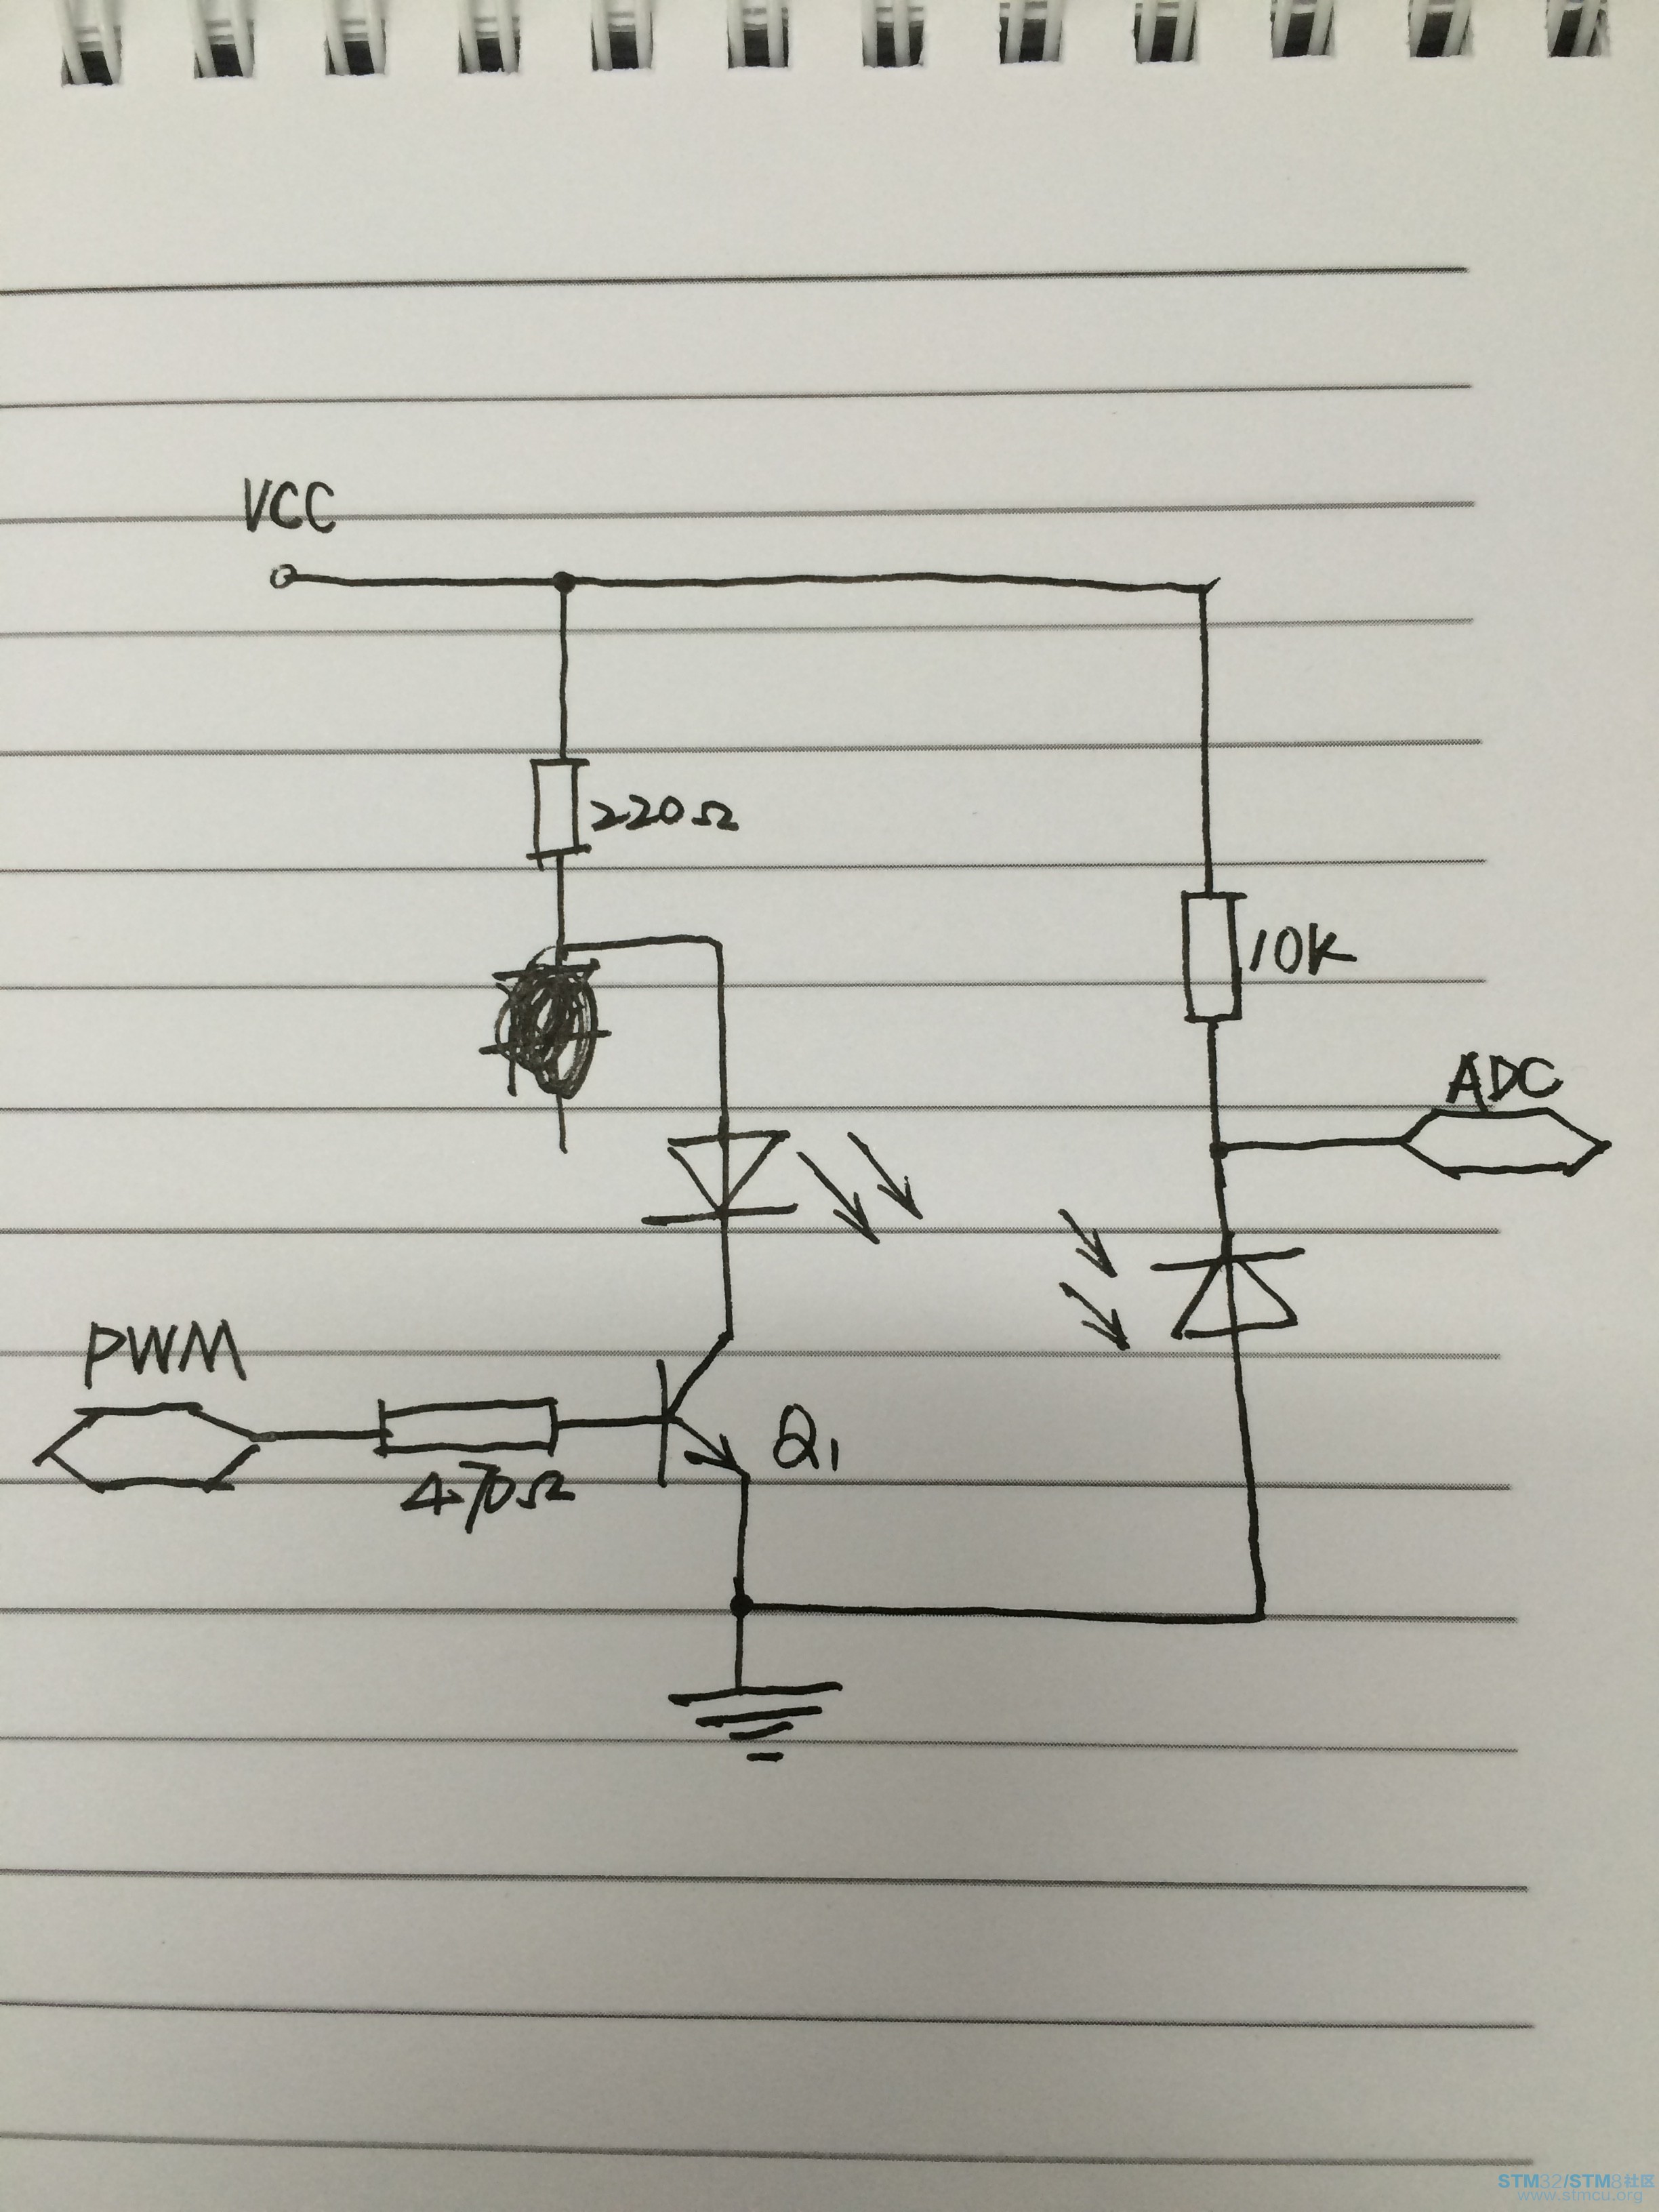 VCC
220Ω
10K
ADC
PWM
470Ω
Q1
STM32/STM8社区
www.stmcu.org